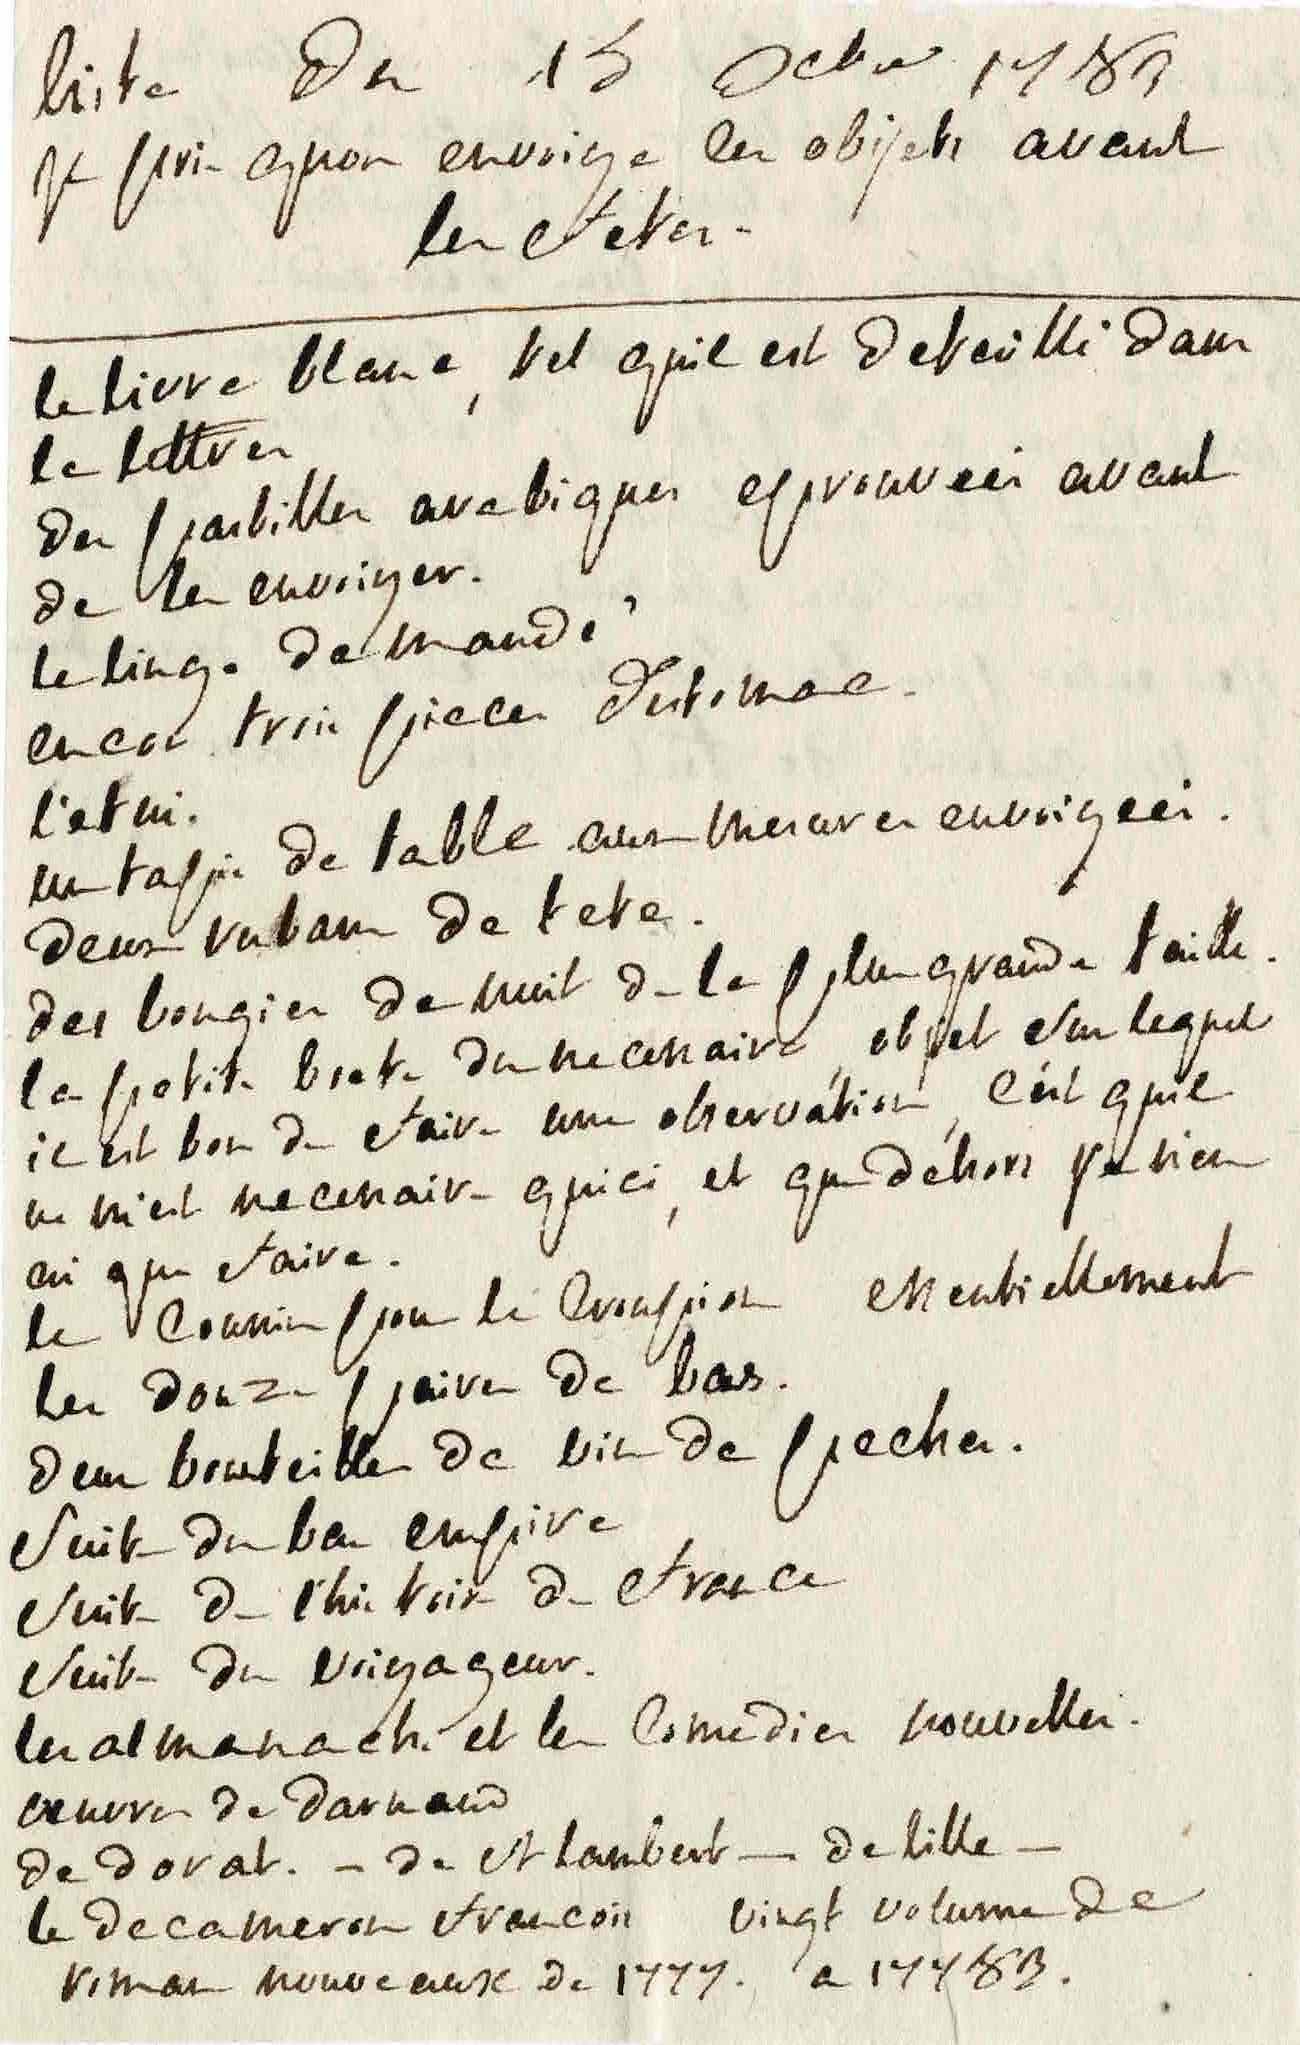 liste du 15 octbre 1783
je prie quon envoiye les objets avant
les fetes.
le livre blanc, tel quil est deteillé dans
le lettres
des pastilles arabiques eprouvées avant
de les envoiyer.
le linge demandé
encor trois pieces d'estomac.
l'etui.
un tapis de table aux mesures envoiyées.
deux rubans de tete.
des bougies de nuit de la plus grande taille.
la petite boete du necessaire, objet sur lequel
il est bon de faire une observation, c'est quil
ne m'est necessaire quici, et que dehors je n'en
ai que faire.
le coussin pour le croupion essentiellement
les douze paires de bas.
deux bouteilles de vin de peches.
suite du bas empire
suite de l'histoire de france
suite du voiyageur.
les almanachs et les comedies nouvelles.
oeuvres de darnaud
de dorat. - de st lambert - delille -
le decameron francois vingt volume de
romans nouveaux de 1777. a 17783.